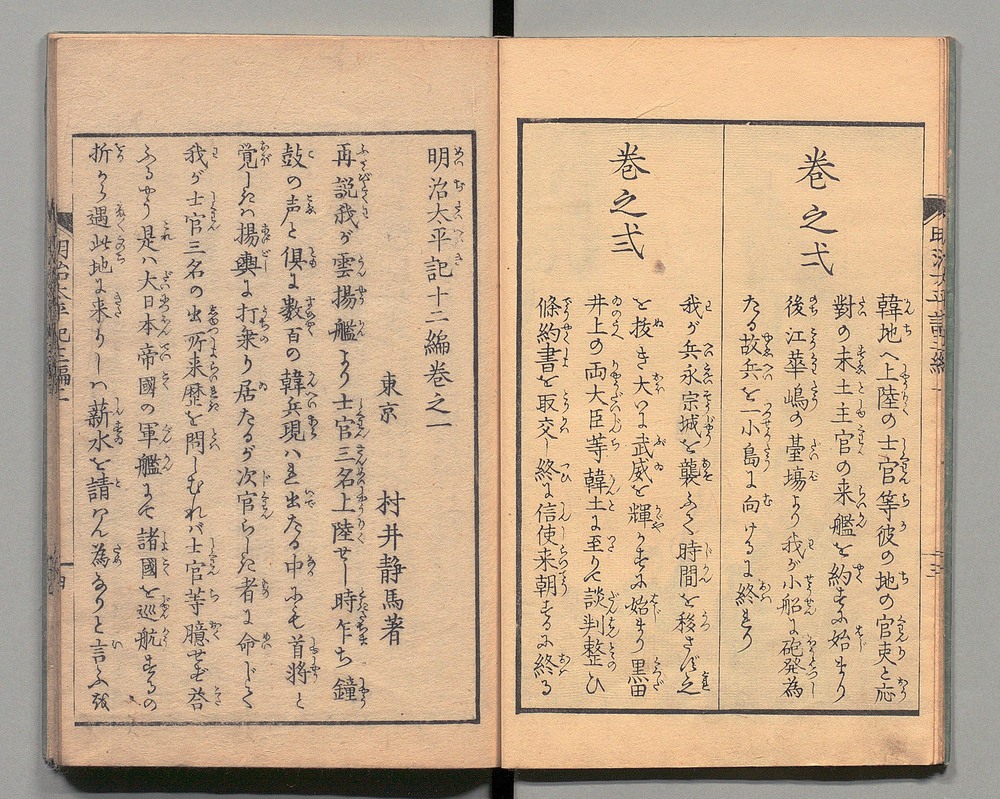 巻之弌
韓地へ上陸の士官等彼の地の官吏と応
對の末土主官の来艦を約するに始まり
後江華嶋の基塲より我が小船に砲発為
たる故兵を一小島に向けるに終る
巻之弐
我が兵永宗城を襲ふて時間を移さず之
を抜き大に武威を輝かすに始まり黒田
井上の両大臣等韓土に至りて談判整ひ
條約書を取交し終に信使来朝するに終る
明治太平記十二編巻之一
東京 村井静馬著
再説我が雲揚艦より士官三名上陸せし時乍ち鐘
鼓の声と倶に數百の韓兵現ハれ出たる中にも首将と
覚しきハ揚輿に打乗り居たるが次官らしき者に命じて
我が士官三名の出所来歴を問しむれバ士官等臆せず答
ふるやう是ハ大日本帝國の軍艦にて諸國を巡航するの
折から遇此地に来りしハ薪水を請ハん為なりと言ふ